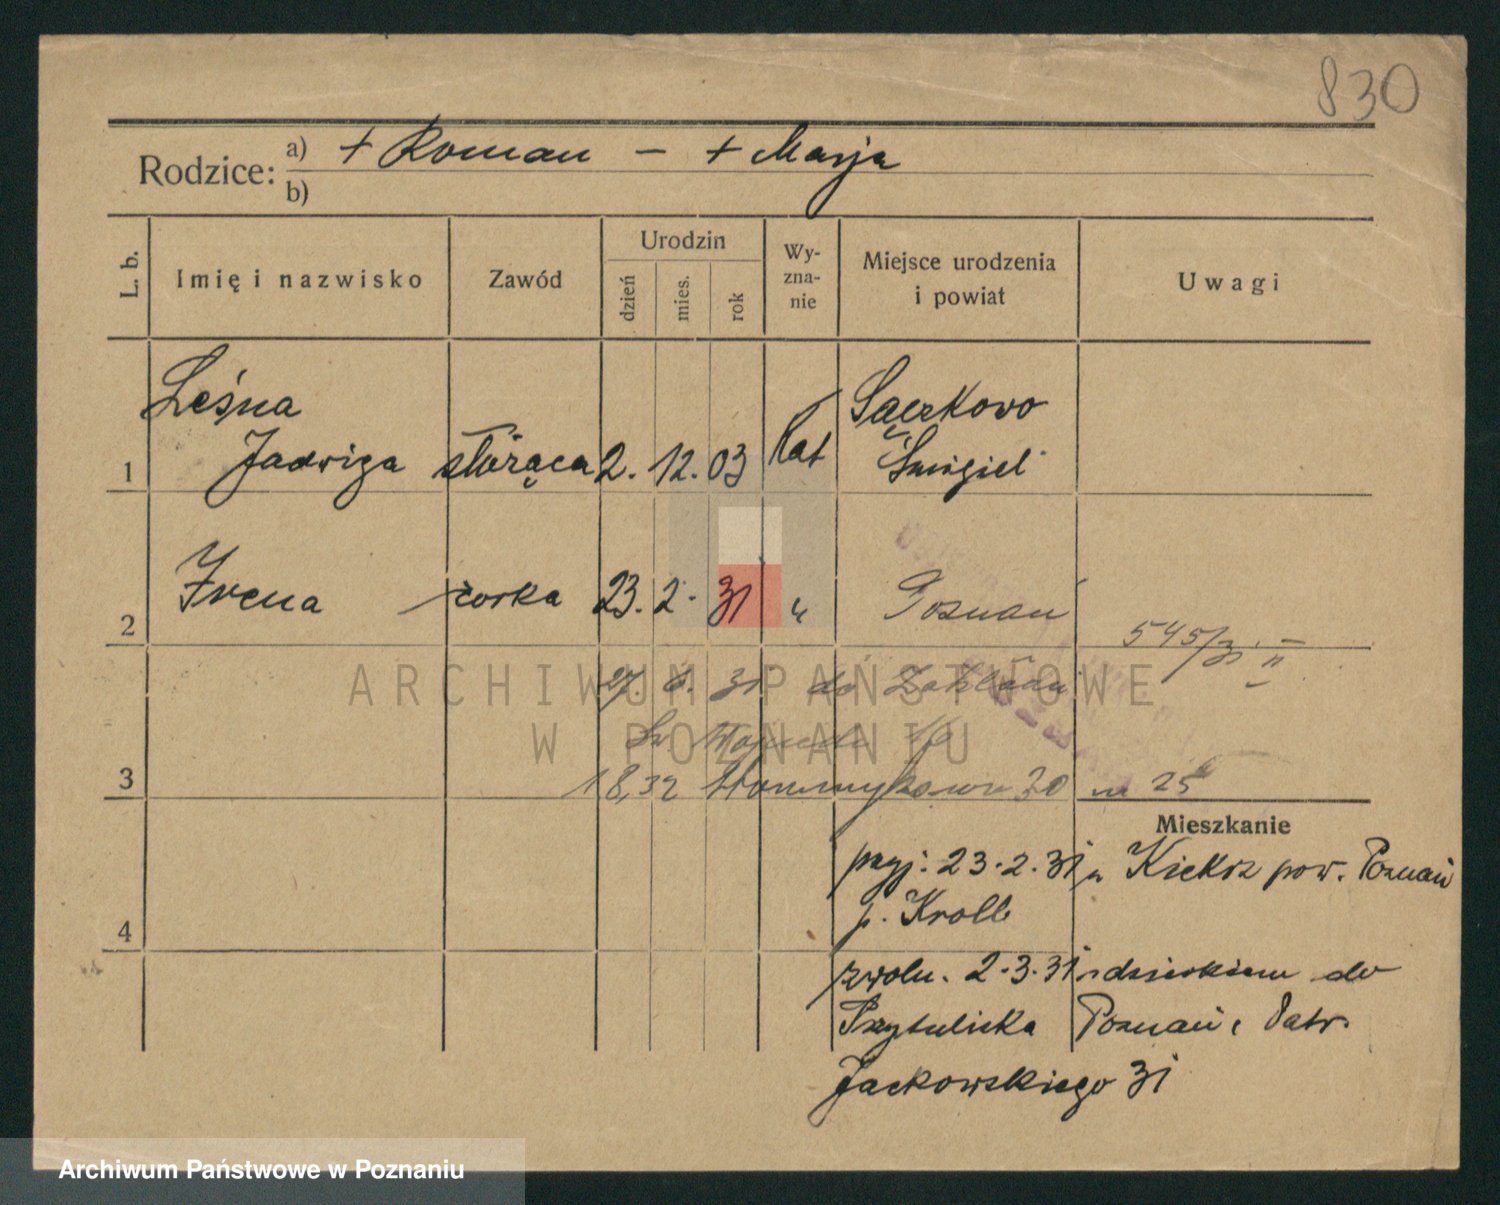 830
Rodzice: a) + Roman – + Marja
b)
L. b. Imię i nazwisko Zawód Urodzin dzień mies. rok Wyzna-nie Miejsce urodzenia i powiat Uwagi
Leśna
Jadwiga służąca 2. 12. 03 Kat Sączkowo
1 Śmigiel
2 Irena córka 23. 2. 31 " Poznań
545/31 II
27. 6. 31 do Zakładu
ARCHIWUM PAŃSTWOWE
W POZNANIU
Św.
3 18, 32 30 25
Mieszkanie
przyj. 23.2.31 z Kiekrz pow. Poznań
4 p. Kroll
zwoln. 2.3.31 z dzieckiem do
Przytuliska Poznań, Patr.
Jackowskiego 31
Archiwum Państwowe w Poznaniu